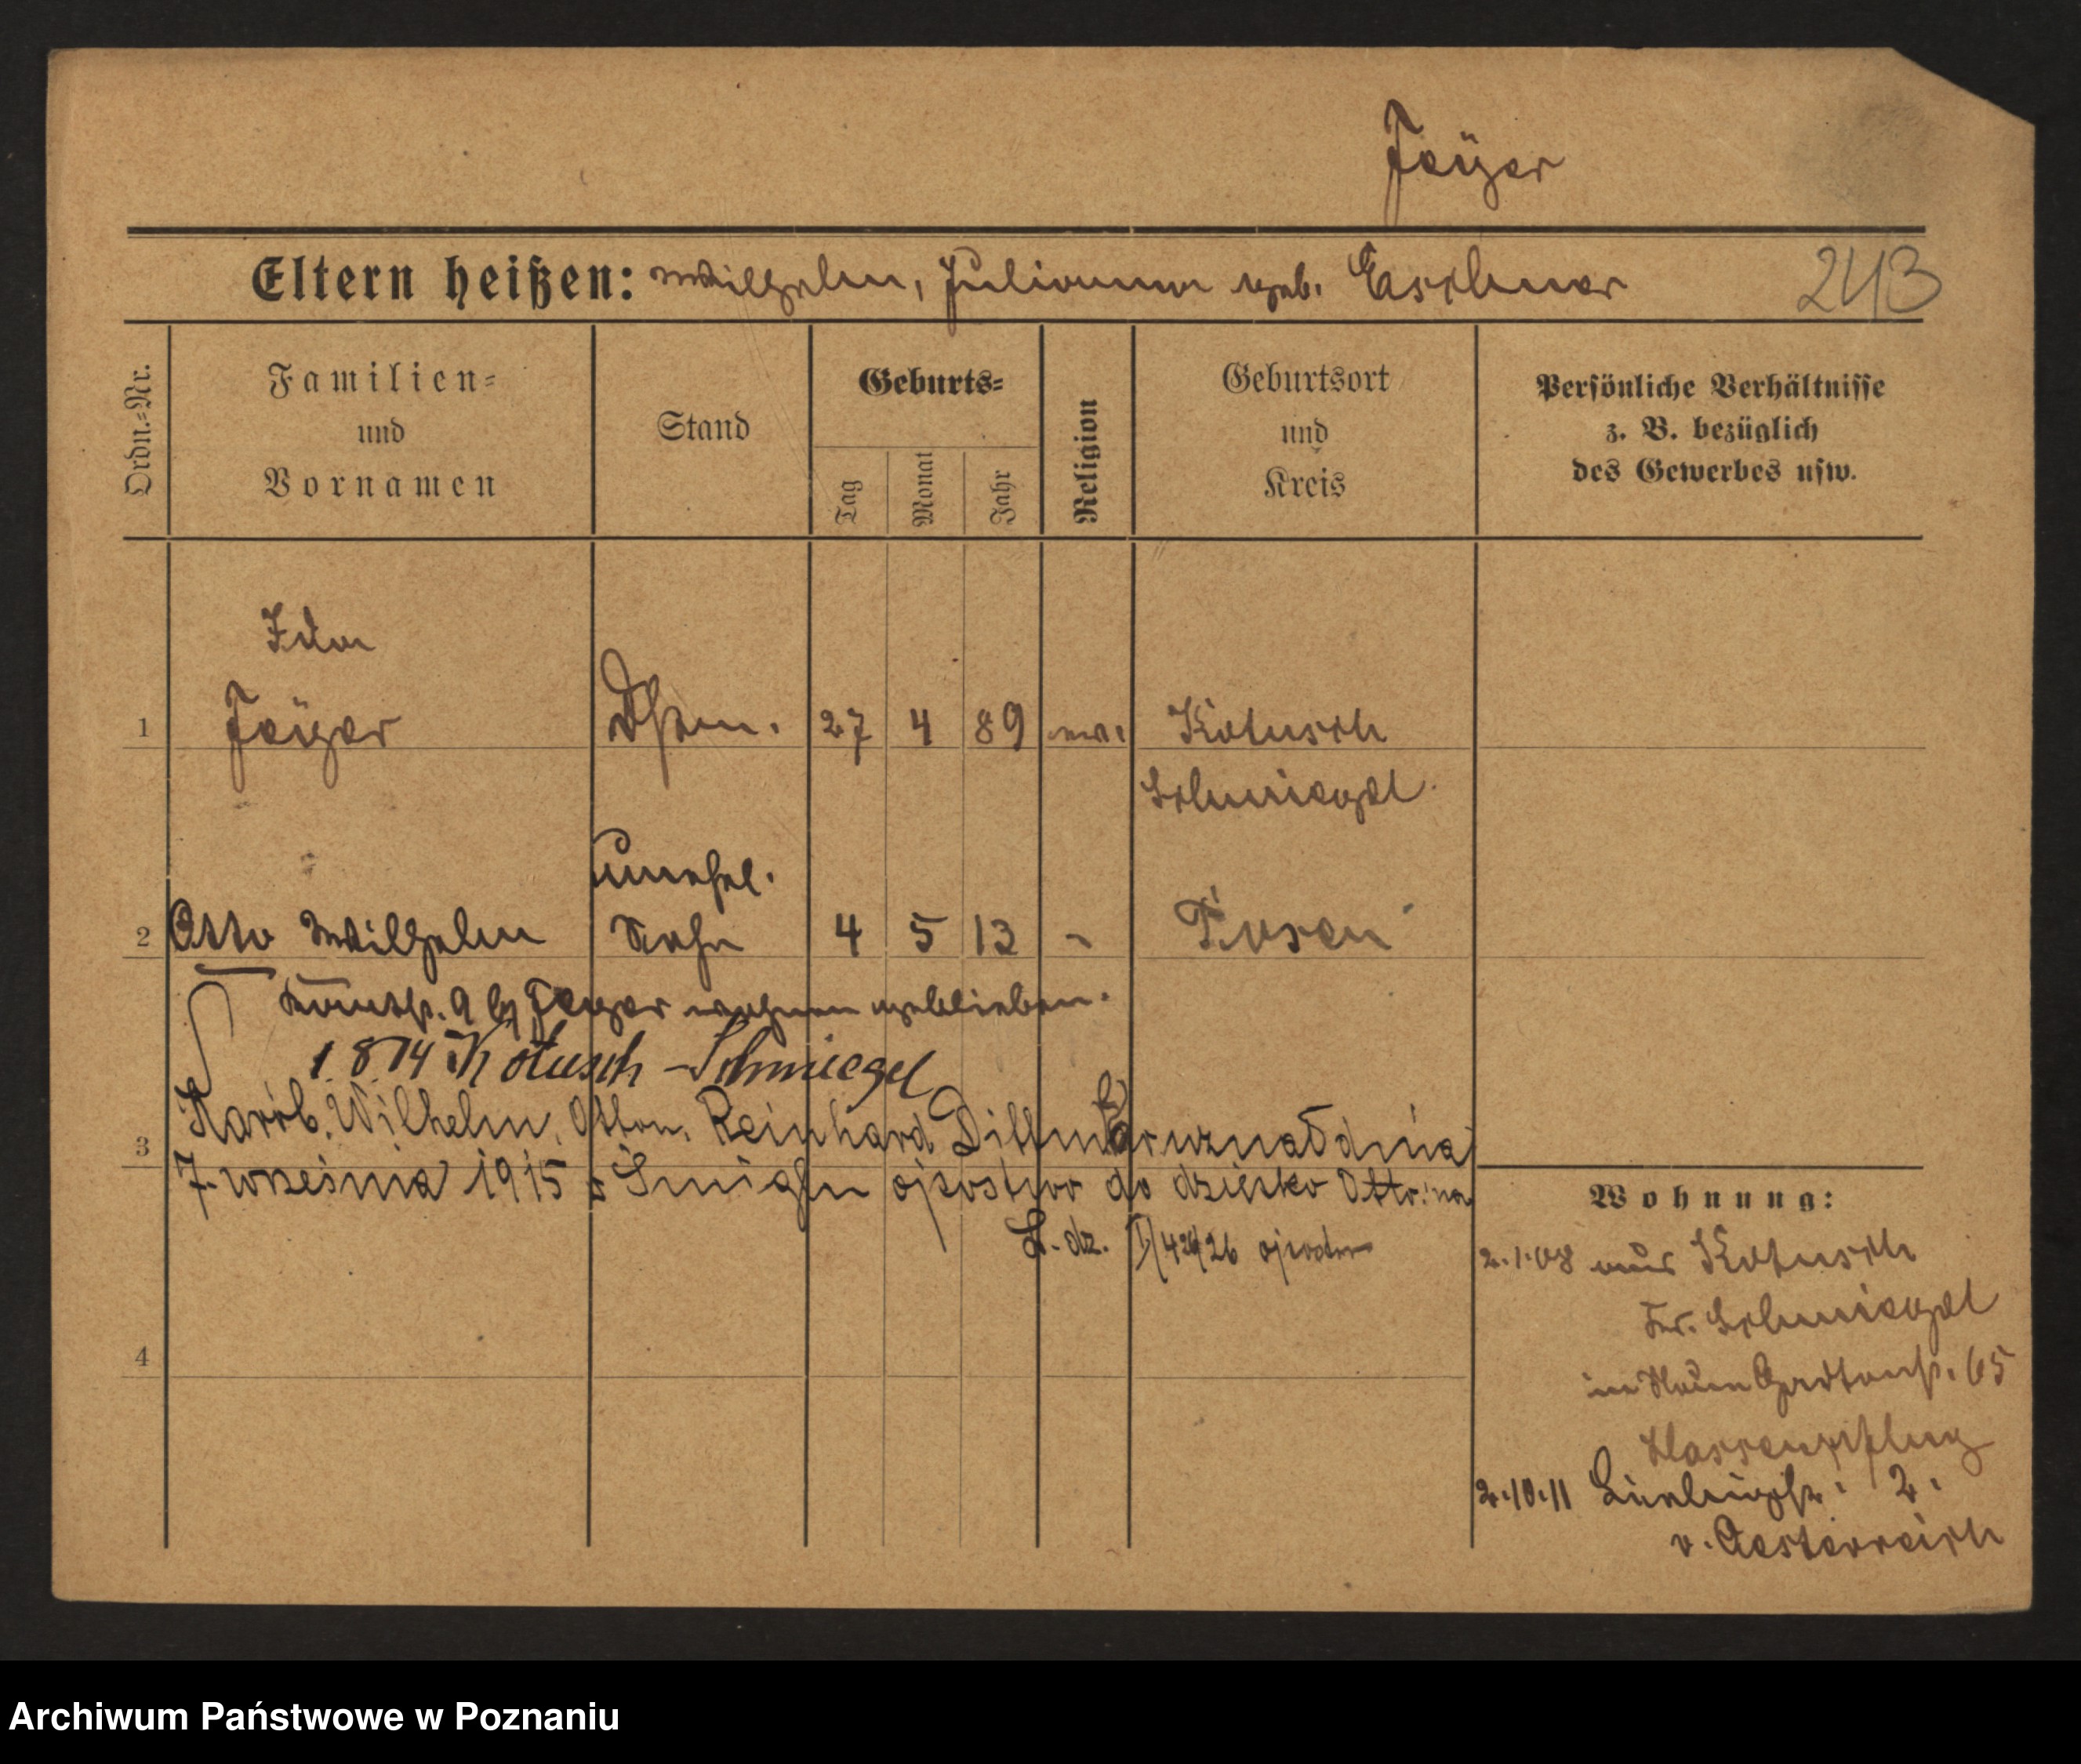 Jeÿer
Eltern heißen: Wilhelm, Julianna geb. Eschner
243
Ordn.=Nr.
Familien=
und
Vornamen
Stand
Geburts=
Tag
Monat
Jahr
Religion
Geburtsort
und
Kreis
Persönliche Verhältnisse
z. B. bezüglich
des Gewerbes usw.
Ida
1 Jeÿer 27 4 89 ev. Kotusch
Schmiegel.
unehel.
2 Otto Wilhelm Sohn 4 5 13 Posen
geblieben.
1 8 14 Kotusch - Schmiegel
Wilhelm, Otton, Reinhard uznał dnia
3
7. września 1915 w Śmiglu ojcostwo do dziecka Ottona
L. dz.
Wohnung:
2.1.08 aus Kotusch
Kr. Schmiegel
65
Hassenpflug
4
2.10.11 2.
v. Oesterreich
Archiwum Państwowe w Poznaniu